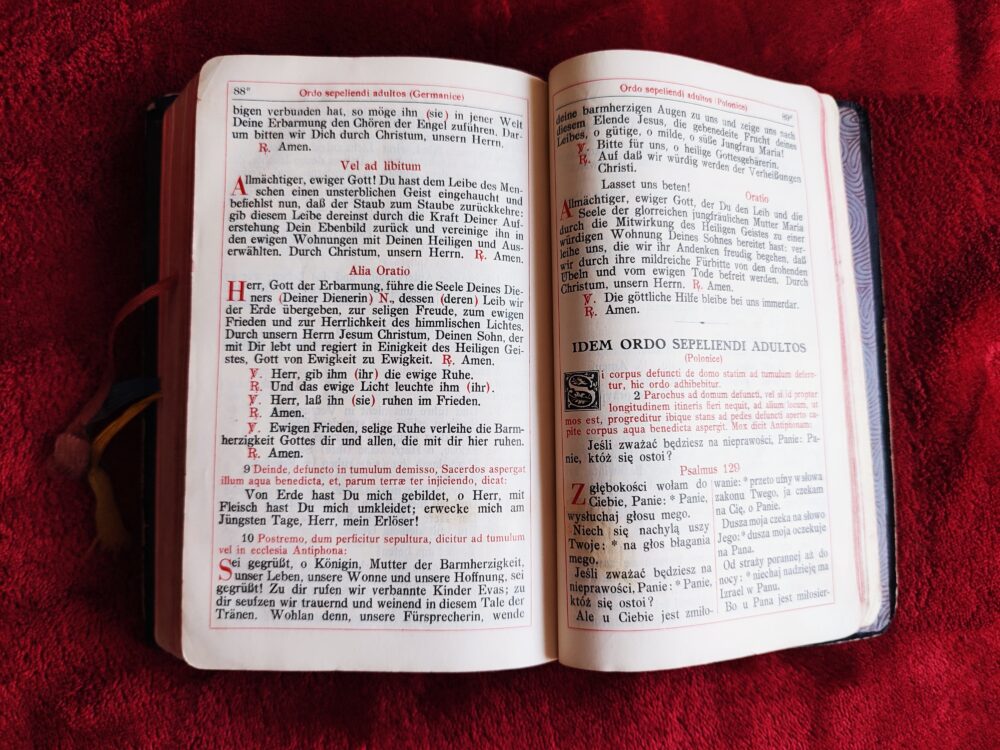 88* Ordo sepeliendi adultos (Germanice)
bigen verbunden hat, so möge ihn (sie) in jener Welt
Deine Erbarmung den Chören der Engel zuführen. Dar-
um bitten wir Dich durch Christum, unsern Herrn.
℟. Amen.
Vel ad libitum
Allmächtiger, ewiger Gott! Du hast dem Leibe des Men-
schen einen unsterblichen Geist eingehaucht und
befiehlst nun, daß der Staub zum Staube zurückkehre:
gib diesem Leibe dereinst durch die Kraft Deiner Auf-
erstehung Dein Ebenbild zurück und vereinige ihn in
den ewigen Wohnungen mit Deinen Heiligen und Aus-
erwählten. Durch Christum, unsern Herrn. ℟. Amen.
Alia Oratio
Herr, Gott der Erbarmung, führe die Seele Deines Die-
ners (Deiner Dienerin) N., dessen (deren) Leib wir
der Erde übergeben, zur seligen Freude, zum ewigen
Frieden und zur Herrlichkeit des himmlischen Lichtes.
Durch unsern Herrn Jesum Christum, Deinen Sohn, der
mit Dir lebt und regiert in Einigkeit des Heiligen Gei-
stes, Gott von Ewigkeit zu Ewigkeit. ℟. Amen.
℣. Herr, gib ihm (ihr) die ewige Ruhe.
℟. Und das ewige Licht leuchte ihm (ihr).
℣. Herr, laß ihn (sie) ruhen im Frieden.
℟. Amen.
℣. Ewigen Frieden, selige Ruhe verleihe die Barm-
herzigkeit Gottes dir und allen, die mit dir hier ruhen.
℟. Amen.
9 Deinde, defuncto in tumulum demisso, Sacerdos aspergat
illum aqua benedicta, et, parum terræ ter injiciendo, dicat:
Von Erde hast Du mich gebildet, o Herr, mit
Fleisch hast Du mich umkleidet; erwecke mich am
Jüngsten Tage, Herr, mein Erlöser!
10 Postremo, dum perficitur sepultura, dicitur ad tumulum
vel in ecclesia Antiphona:
Sei gegrüßt, o Königin, Mutter der Barmherzigkeit,
unser Leben, unsere Wonne und unsere Hoffnung, sei
gegrüßt! Zu dir rufen wir verbannte Kinder Evas; zu
dir seufzen wir trauernd und weinend in diesem Tale der
Tränen. Wohlan denn, unsere Fürsprecherin, wende
Ordo sepeliendi adultos (Polonice) 89*
deine barmherzigen Augen zu uns und zeige uns nach
diesem Elende Jesus, die gebenedeite Frucht deines
Leibes, o gütige, o milde, o süße Jungfrau Maria!
℣. Bitte für uns, o heilige Gottesgebärerin.
℟. Auf daß wir würdig werden der Verheißungen
Christi.
Lasset uns beten! Oratio
Allmächtiger, ewiger Gott, der Du den Leib und die
Seele der glorreichen jungfräulichen Mutter Maria
durch die Mitwirkung des Heiligen Geistes zu einer
würdigen Wohnung Deines Sohnes bereitet hast: ver-
leihe uns, die wir ihr Andenken freudig begehen, daß
wir durch ihre mildreiche Fürbitte von den drohenden
Übeln und vom ewigen Tode befreit werden. Durch
Christum, unsern Herrn. ℟. Amen.
℣. Die göttliche Hilfe bleibe bei uns immerdar.
℟. Amen.
IDEM ORDO SEPELIENDI ADULTOS
(Polonice)
Si corpus defuncti de domo statim ad tumulum defera-
tur, hic ordo adhibebitur.
2 Parochus ad domum defuncti, vel si id propter
longitudinem itineris fieri nequit, ad alium locum, ut
mos est, progreditur ibique stans ad pedes defuncti aperto ca-
pite corpus aqua benedicta aspergit. Mox dicit Antiphonam:
Jeśli zważać będziesz na nieprawości, Panie: Pa-
nie, któż się ostoi?
Psalmus 129
Z głębokości wołam do
Ciebie, Panie: * Panie,
wysłuchaj głosu mego.
Niech się nachylą uszy
Twoje: * na głos błagania
mego.
Jeśli zważać będziesz na
nieprawości, Panie: * Panie,
któż się ostoi?
Ale u Ciebie jest zmiło-
wanie: * przeto ufny w słowa
zakonu Twego, ja czekam
na Cię, o Panie.
Dusza moja czeka na słowo
Jego: * dusza moja oczekuje
na Pana.
Od straży porannej aż do
nocy: * niechaj nadzieję ma
Izrael w Panu.
Bo u Pana jest miłosier-